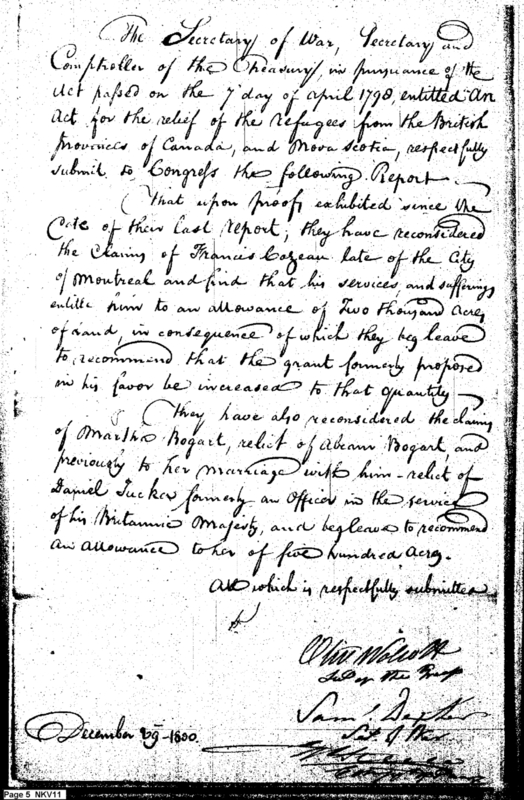 The Secretary of War, Secretary and
Comptroller of the Treasury, in pursuance of the
Act passed on the 7th day of april 1798, entitled "An
Act for the relief of the refugees from the British
Provinces of Canada, and Nova Scotia, respectfully
submit to Congress the following Report.
That upon proofs exhibited since the
date of their last report, they have reconsidered
the claims of Francis Cazeau late of the City
of Montreal and find that his services, and sufferings
entitle him to an allowance of Two thousand Acres
of Land, in consequence of which they beg leave
to recommend that the grant formerly proposed
in his favor be increased to that quantity
They have also reconsidered the claims
of Martha Bogart, relict of Abram Bogart, and
previously to her marriage with him - relict of
Daniel Tucker formerly an Officer in the service
of his Britannic Majesty, and beg leave to recommend
an allowance to her of five hundred Acres.
All which is respectfully submitted
Oliv. Wolcott
Secy of the Treasy
Saml Dexter
Sec of War
December 1800.
Page 5 NKV11